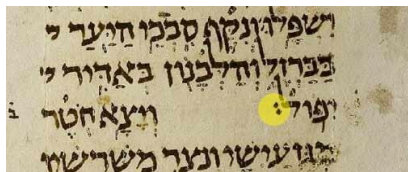 יִשְׁפָּלוּ וְנִקַּף סִבְכֵי הַיַּעַר
בַּבַּרְזֶל וְהַלְּבָנוֹן בְּאַדִּיר
יִפּוֹל׃ וְיָצָא חֹטֶר
מִגֵּזַע יִשָׁי וְנֵצֶר מִשָּׁרָשָׁיו